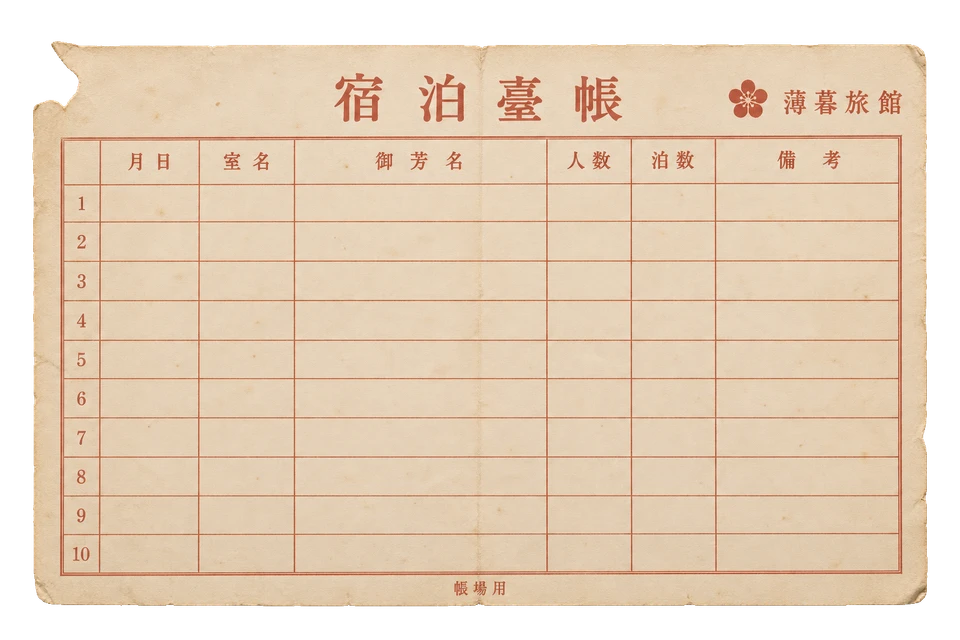 宿泊臺帳
薄暮旅館
月日 室名 御芳名 人数 泊数 備考
1
2
3
4
5
6
7
8
9
10
帳場用